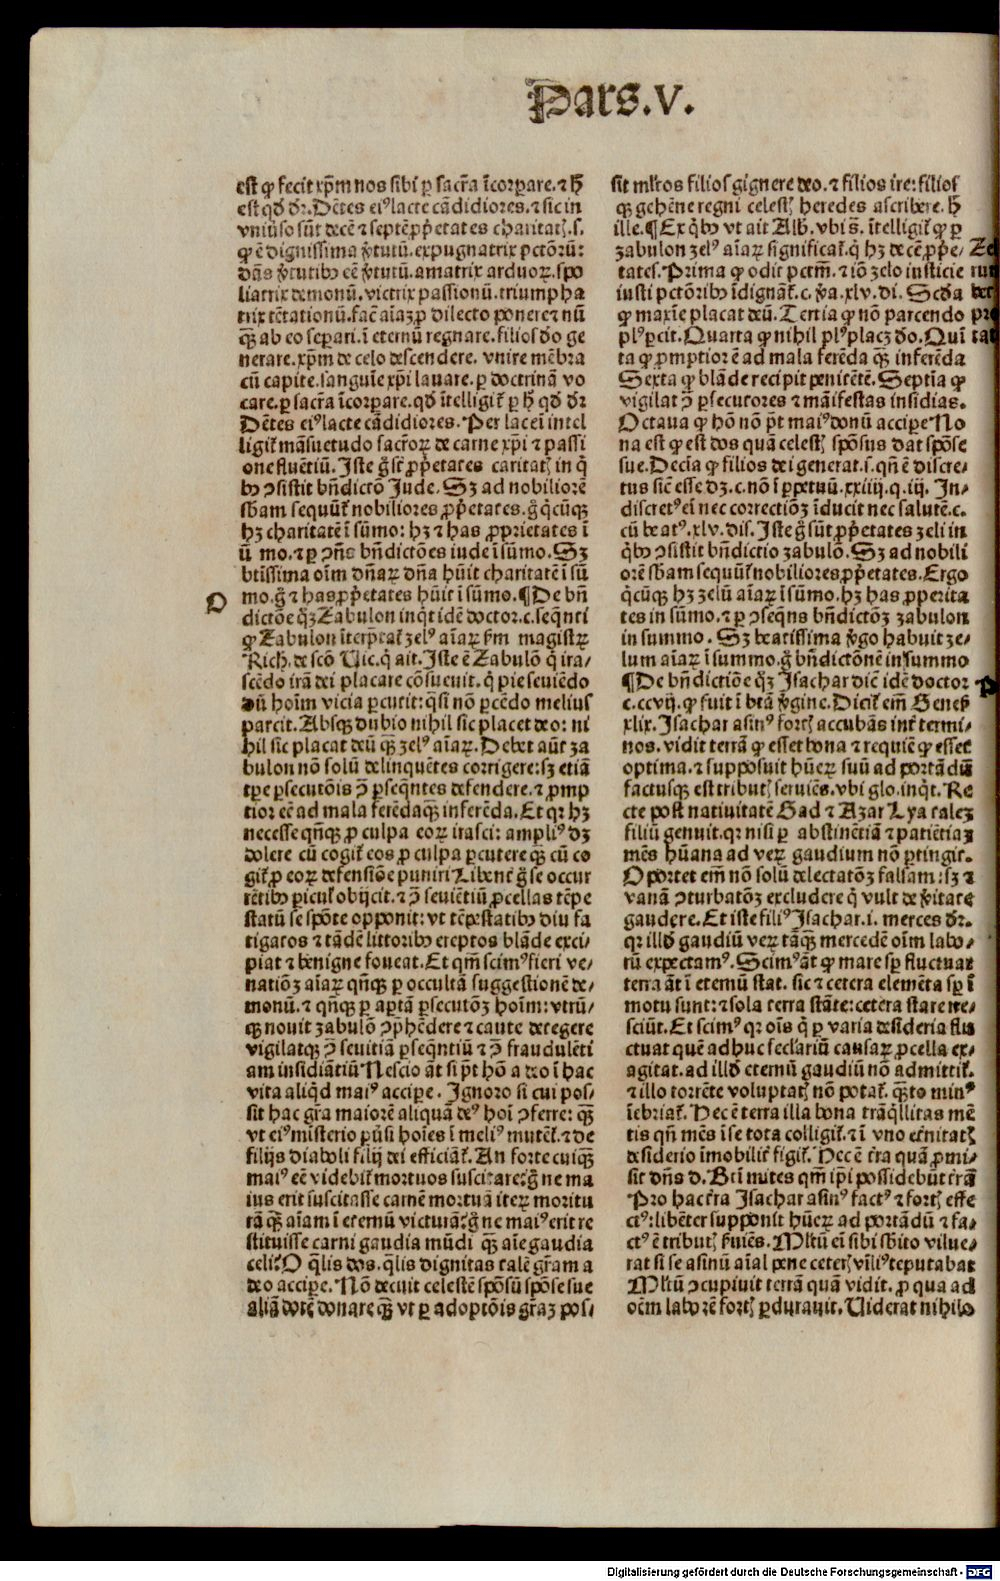 Pars.V.
est ꝙ fecit xp̄m nos sibi ꝑ sacr̄a ĩcorꝑare. ⁊ ħ
est qđ dr̄. Dẽtes ei⁹ lacte cãdidiores. ⁊ sic in
vniũso sũt decẽ ⁊ septẽ ꝓṗetates charitatꝭ. s.
ꝙ ẽ dignissima ṽtutũ. expugnatrix pctõrũ:
dñs ṽtutibꝰ eẽ ṽtutũ. amatrix arduoꝝ. spo
liatrix demonũ. victrix passionũ. triumpha
trix tẽtationũ. facẽ aĩaꝫ ꝓ dilecto ponere ⁊ nũ
q̃ꝫ ab eo separi. ĩ eternũ regnare. filios đo ge
nerare. xp̄m de celo descendere. vnire mẽbra
cũ capite. sanguĩe xp̄i lauare. ꝑ doctrinã vo
care. ꝑ sacr̄a ĩcorꝑare. qđ ĩtelligit᷑ ꝑ ħ qđ dr̄
Dẽtes ei⁹ lacte cãdidiores. Per lacei intel
ligit᷑ mãsuetudo sacr̄oꝝ de carne xp̄i ⁊ passi
one fluẽtiũ. Iste g̃ sĩt ꝓṗetates caritatꝭ in q̃
bꝰ ↄsistit bñdictõ Jude. Sꝫ ad nobiliorẽ
sb̄am sequũt᷑ nobiliores ꝓṗetates. g̃ q̃cũqꝫ
hꝫ charitatẽ ĩ sũmo: hꝫ ⁊ has ꝓprietates ĩ
ũ mo. ⁊ ꝑ ↄñs bñdictões iude ĩ sũmo. Sꝫ
btĩssima oĩm dñaꝝ dña hũit charitatẽ ĩ sũ
mo. g̃ ⁊ has ꝓṗetates hũit ĩ sũmo. ¶ De bñ
O
dictõe q̃ꝫ Zabulon inq̃t idẽ doctor. c. seq̃nti
ꝙ Zabulon ĩterp̃tat᷑ zel⁹ aĩaꝝ ẜm magistꝝ
Rich. de scõ Vic. q̃ ait. Iste ẽ Zabulõ q̃ ira⸗
scẽdo irã dei placare cõsueuit. q̃ pie seuiẽdo
dũ hoĩm vicia ꝑcutit: q̃si nõ ꝑcẽdo melius
parcit. Absqꝫ dubio nihil sic placet deo: ni
hil sic placat deũ q̃ꝫ zel⁹ aĩaꝝ. Debet aũt za
bulon nõ solũ delinquẽtes corrigere: sꝫ etiã
tꝑe ꝑsecutõis ꝓ ꝑseq̃ntes defendere. ⁊ ꝓmp
tior eẽ ad mala ferẽda q̃ꝫ inferẽda. Et qꝛ hꝫ
necesse qñqꝫ ꝓ culpa eoꝝ irasci: ampli⁹ dꝫ
dolere cũ cogit᷑ eos ꝓ culpa ꝑcutere q̃ꝫ cũ co
git᷑ ꝓ eoꝝ defensiõe puniri Libent᷑ g̃ se occur
rẽtibꝰ piculꝭ obijcit. ⁊ ↄ̃ seuiẽtiũ ꝓcellas tẽpe
statũ se spõte opponit: vt tẽpestatibꝰ diu fa
tigatos ⁊ tãdẽ littoribꝰ ereptos blãde exci⸗
piat ⁊ benigne foueat. Et qm̃ scim⁹ fieri ve⸗
natiõꝫ aĩaꝝ qñqꝫ ꝑ occultã suggestionẽ de⸗
monũ. ⁊ qñqꝫ ꝑ aptã ꝑsecutõꝫ hoĩm: vtrũ⸗
qꝫ nouit zabulõ ↄp̃hẽdere ⁊ caute detegere
vigilatqꝫ ↄ̃ seuitiã ꝑseq̃ntiũ ⁊ ↄ̃ fraudulẽti
am insidiãtiũ Nescio ãt si p̃t hõ a deo ĩ hac
vita aliq̃d mai⁹ accipe. Ignoro si cui pos⸗
sit hac gr̃a maiorẽ aliquã de⁹ hoĩ ↄferre: q̃ꝫ
vt ei⁹ mĩsterio ꝑũsi hoĩes ĩ meli⁹ mutẽt᷑. ⁊ de
filijs diaboli filij dei efficiãt᷑. An forte cuiq̃ꝫ
mai⁹ eẽ videbit᷑ mortuos suscitare: g̃ ne ma
ius erit suscitasse carnẽ mortuã iteꝝ moritu
rã q̃ꝫ aĩam ĩ eternũ victurã: g̃ ne mai⁹ erit re
stituisse carni gaudia mũdi q̃ꝫ aĩe gaudia
celi: O q̃lis dos. q̃lis dignitas talẽ gr̃am a
deo accipe. Nõ decuit celestẽ spõsũ spõse sue
aliã dotẽ donare q̃ꝫ vt ꝑ adoptõis gr̃aꝫ pos⸗
sit ml̃tos filios gignere deo. ⁊ filios ire: filios
qꝫ gehẽne regni celestꝭ heredes ascribere. ħ
ille. ¶ Ex q̃bꝰ vt ait Alb. vbi s̃. ĩtelligit᷑ ꝙ ꝑ
zabulon zel⁹ aĩaꝝ significat᷑. q̃ hꝫ decẽ ꝓṗe⸗
tates. Prima ꝙ odit pctm̃. ⁊ iõ zelo iusticie
iusti pctõribꝰ ĩdignãt᷑. c. ṽa. xlv. di. Scđa
ꝙ maxĩe placat deũ. Tertia ꝙ nõ parcendo
pl⁹ ꝑcit. Quarta ꝙ nihil pl⁹ placꝫ đo. Quĩ
ta ꝙ ꝓmptior ẽ ad mala ferẽda q̃ꝫ inferẽda
Sexta ꝙ blãde recipit penitẽtẽ. Septĩa ꝙ
vigilat ↄ̃ ꝑsecutores ⁊ mãifestas insidias.
Octaua ꝙ hõ nõ p̃t mai⁹ donũ accipe No
na est ꝙ est dos quã celestꝭ spõsus dat spõse
sue. Decĩa ꝙ filios dei generat. s. qñ ẽ discre⸗
tus sicẽ esse dꝫ. c. nõ ĩ ꝑpetuũ. xxiiij. q. iij. In⸗
discret⁹ eĩ nec correctiõꝫ ĩducit nec salutẽ. c.
cũ beat⁹. xlv. dis. Iste g̃ sũt ꝓṗetates zeli in
q̃bꝰ ↄsistit bñdictio zabulõ. Sꝫ ad nobili
orẽ sb̄am sequũt᷑ nobiliores ꝓṗetates. Ergo
q̃cũqꝫ hꝫ zelũ aĩaꝝ ĩ sũmo. hꝫ has ꝓperita
tes in sũmo. ⁊ ꝑ ↄseq̃ns bñdictõꝫ zabulon
in summo. Sꝫ beatissima ṽgo habuit ze⸗
lum aĩaꝝ ĩ summo. g̃ bñdictõnẽ in summo
¶ De bñdictiõe q̃ꝫ Isachar dicẽ idẽ doctor
c. ccvij. ꝙ fuit ĩ btã ṽgine. Dicit᷑ em̃ Geneꝭ
xlix. Isachar asin⁹ fortꝭ accubãs int᷑ termi⸗
nos. vidit terrã ꝙ esset bona ⁊ requiẽ ꝙ esset
optima. ⁊ supposuit hũeꝝ suũ ad portãdũ
factusqꝫ est tributꝭ seruiẽs. vbi glo. inq̃t. Re
cte post natiuitatẽ Gad ⁊ Azar Lya talez
filiũ genuit. qꝛ nisi ꝑ abstinẽtiã ⁊ patiẽtiaꝫ
mẽs hũana ad veꝝ gaudium nõ ꝑtingit.
Oportet em̃ nõ solũ delectatõꝫ falsam: sꝫ ⁊
vanã ↄturbatõꝫ excludere q̃ vult de ṽitate
gaudere. Et iste fili⁹ Isachar. i. merces dr̄.
qꝛ illđ gaudiũ veꝝ tãq̃ꝫ mercedẽ oĩm labo⸗
rũ expectam⁹. Scim⁹ ãt ꝙ mare sp̃ fluctuat
terra ãt ĩ eternũ stat. sic ⁊ cetera elemẽta sp̃ ĩ
motu sunt: ⁊ sola terra stãte: cetera stare ne⸗
sciũt. Et scim⁹ qꝛ oĩs q̃ ꝑ varia desideria flu
ctuat quẽ adhuc seclariũ causaꝝ ꝓcella ex⸗
agitat. ad illđ eternũ gaudiũ nõ admittit᷑.
⁊ illo torrẽte voluptatꝭ nõ potat᷑. q̃ꝫto min⁹
ĩebriat᷑. Hec ẽ terra illa bona trãq̃llitas mẽ
tis qñ mẽs ĩ se tota colligit᷑. ⁊ ĩ vno et᷑nitatꝭ
desiderio ĩmobilit᷑ figit᷑. Hec ẽ t᷑ra quã ꝓmi⸗
sit dñs đ. Btĩ mites qm̃ ip̃i possidebũt t᷑rã
Pro hac t᷑ra Isachar asin⁹ fact⁹ ⁊ fortꝭ effe
ct⁹: libẽter supponit hũeꝝ ad portãdũ ⁊ fa⸗
ct⁹ ẽ tributꝭ ẜuiẽs. Ml̃tũ eĩ sibi sb̄ito vilue⸗
rat si se asinũ aĩal pene ceterꝭ vili⁹ reputabat
Ml̃tũ ↄcupiuit terrã quã vidit. ꝓ qua ad
oẽm laborẽ fortꝭ ꝑdurauit. Viderat nihilo
P
Digitalisierung gefördert durch die Deutsche Forschungsgemeinschaft - DFG